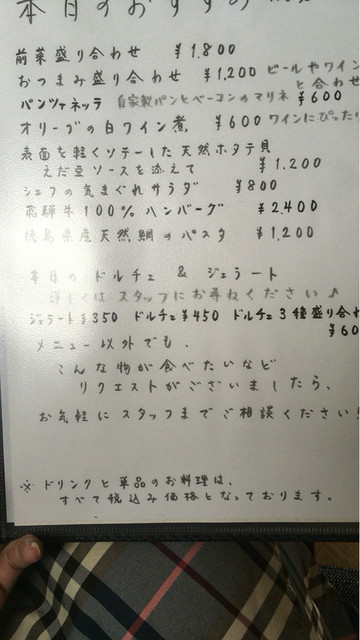 本日のおすすめ
前菜盛り合わせ ¥1,800
おつまみ盛り合わせ ¥1,200 ビールやワイン
と合わせ
パンツァネッテ 自家製パンとベーコンのマリネ ¥600
オリーブの白ワイン煮 ¥600 ワインにぴった
表面を軽くソテーした天然ホタテ貝
えだ豆ソースを添えて ¥1,200
シェフの気まぐれサラダ ¥800
飛騨牛100%ハンバーグ ¥2,400
徳島県産天然鯛のパスタ ¥1,200
本日のドルチェ & ジェラート
詳しくはスタッフにお尋ねください♪
ジェラート¥350 ドルチェ¥450 ドルチェ3種盛り合わ
¥60
メニュー以外でも、
こんな物が食べたいなど
リクエストがございましたら、
お気軽にスタッフまでご相談ください!
※ドリンクと単品のお料理は、
すべて税込み価格となっております。